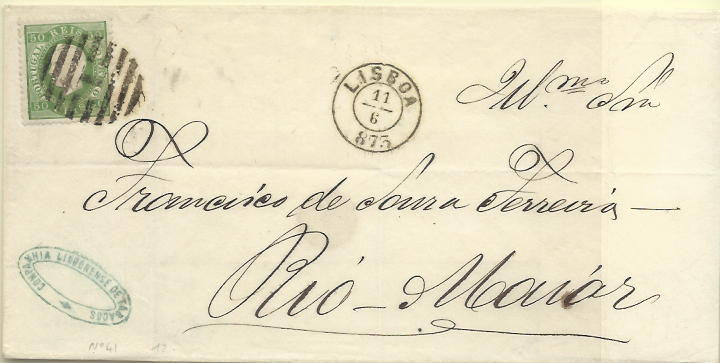 50 REIS 50
PORTUGAL
LISBOA
11
6
875
Ill.mo Snr
Francisco de Souza Ferreira —
Rió – Maiór
COMPANHIA LISBONENSE DE TABACOS
Nº 41 12